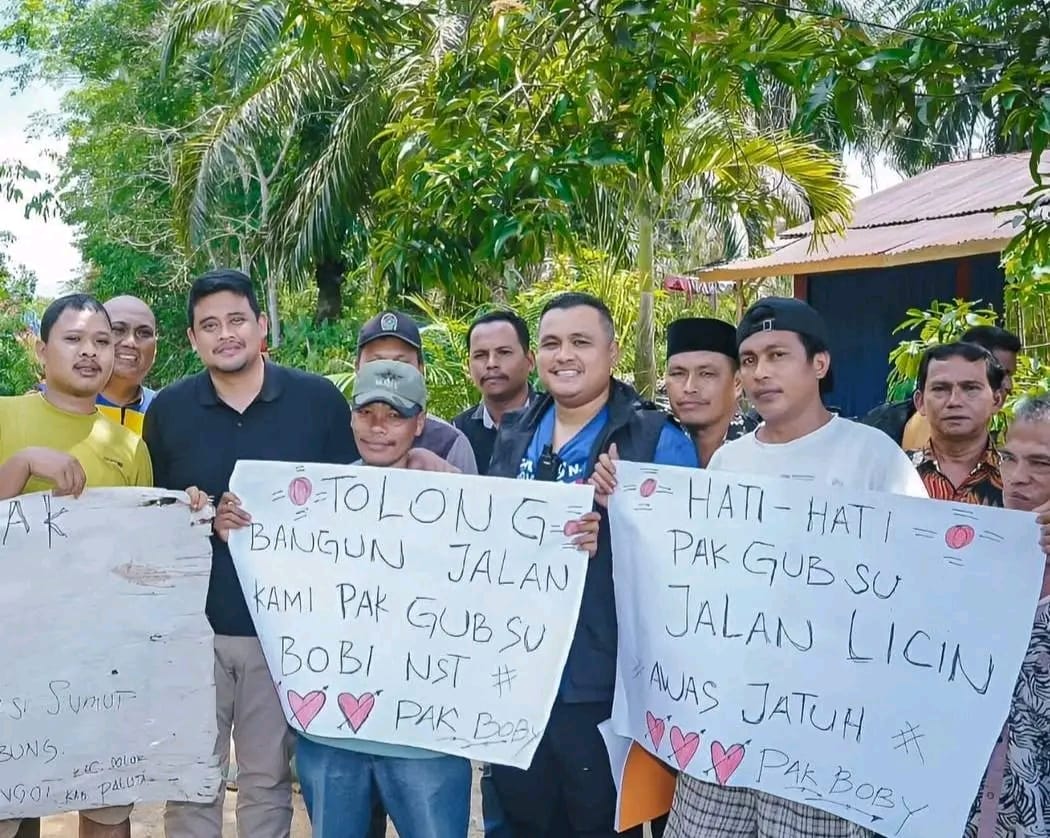 AK
SI SUMUT
BUNG.
NGOT KEC. DOLOK
KAB PALUTA
TOLONG
BANGUN JALAN
KAMI PAK GUBSU
BOBI NST #
PAK BOBY
HATI-HATI
PAK GUBSU
JALAN LICIN
AWAS JATUH #
PAK BOBY